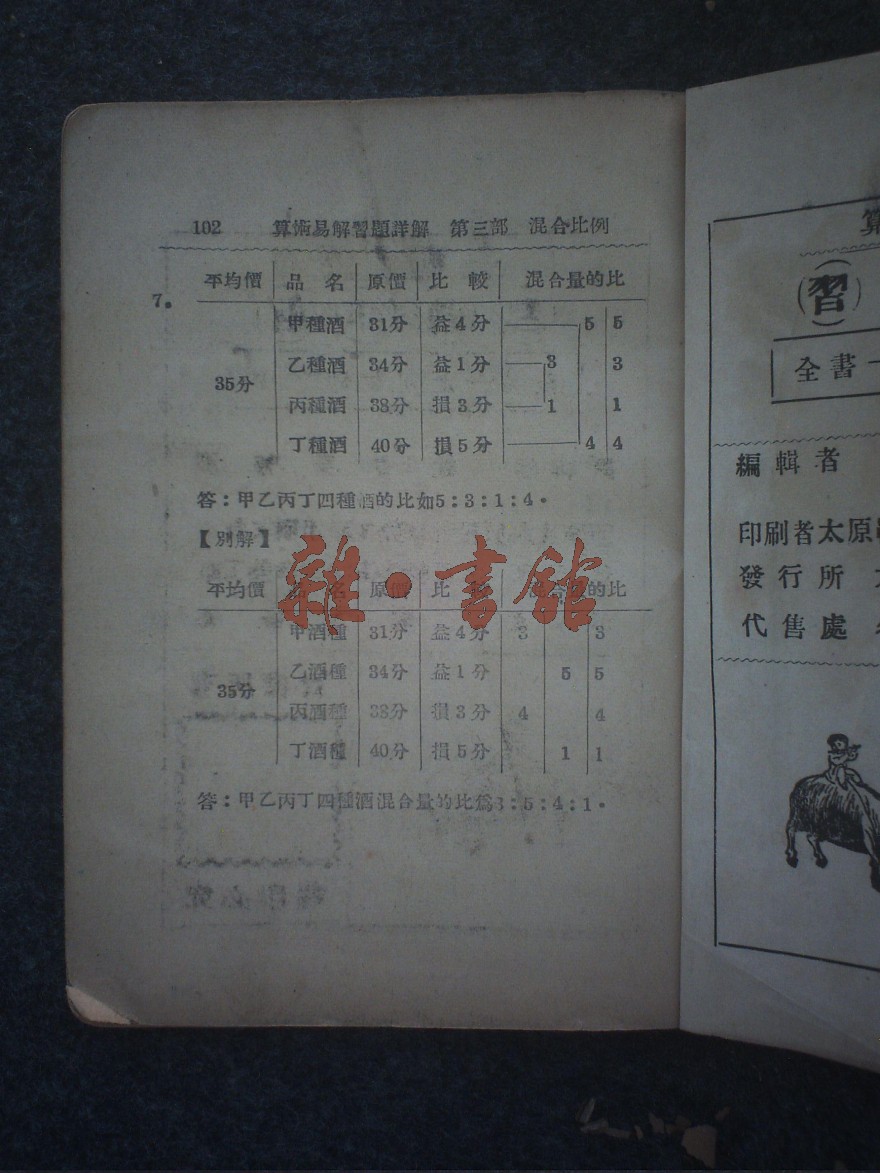 102 算術易解習題詳解 第三部 混合比例
7.
平均價 品名 原價 比較 混合量的比
甲種酒 31分 益4分 5 5
乙種酒 34分 益1分 3 3
35分
丙種酒 38分 損3分 1 1
丁種酒 40分 損5分 4 4
答:甲乙丙丁四種酒的比如5:3:1:4.
【別解】
雜·書館
平均價 品名 原價 比較 混合量的比
甲酒種 31分 益4分 3 3
乙酒種 34分 益1分 5 5
35分
丙酒種 38分 損3分 4 4
丁酒種 40分 損5分 1 1
答:甲乙丙丁四種酒混合量的比爲3:5:4:1.
(習)
全書
編輯者
印刷者太原
發行所
代售處